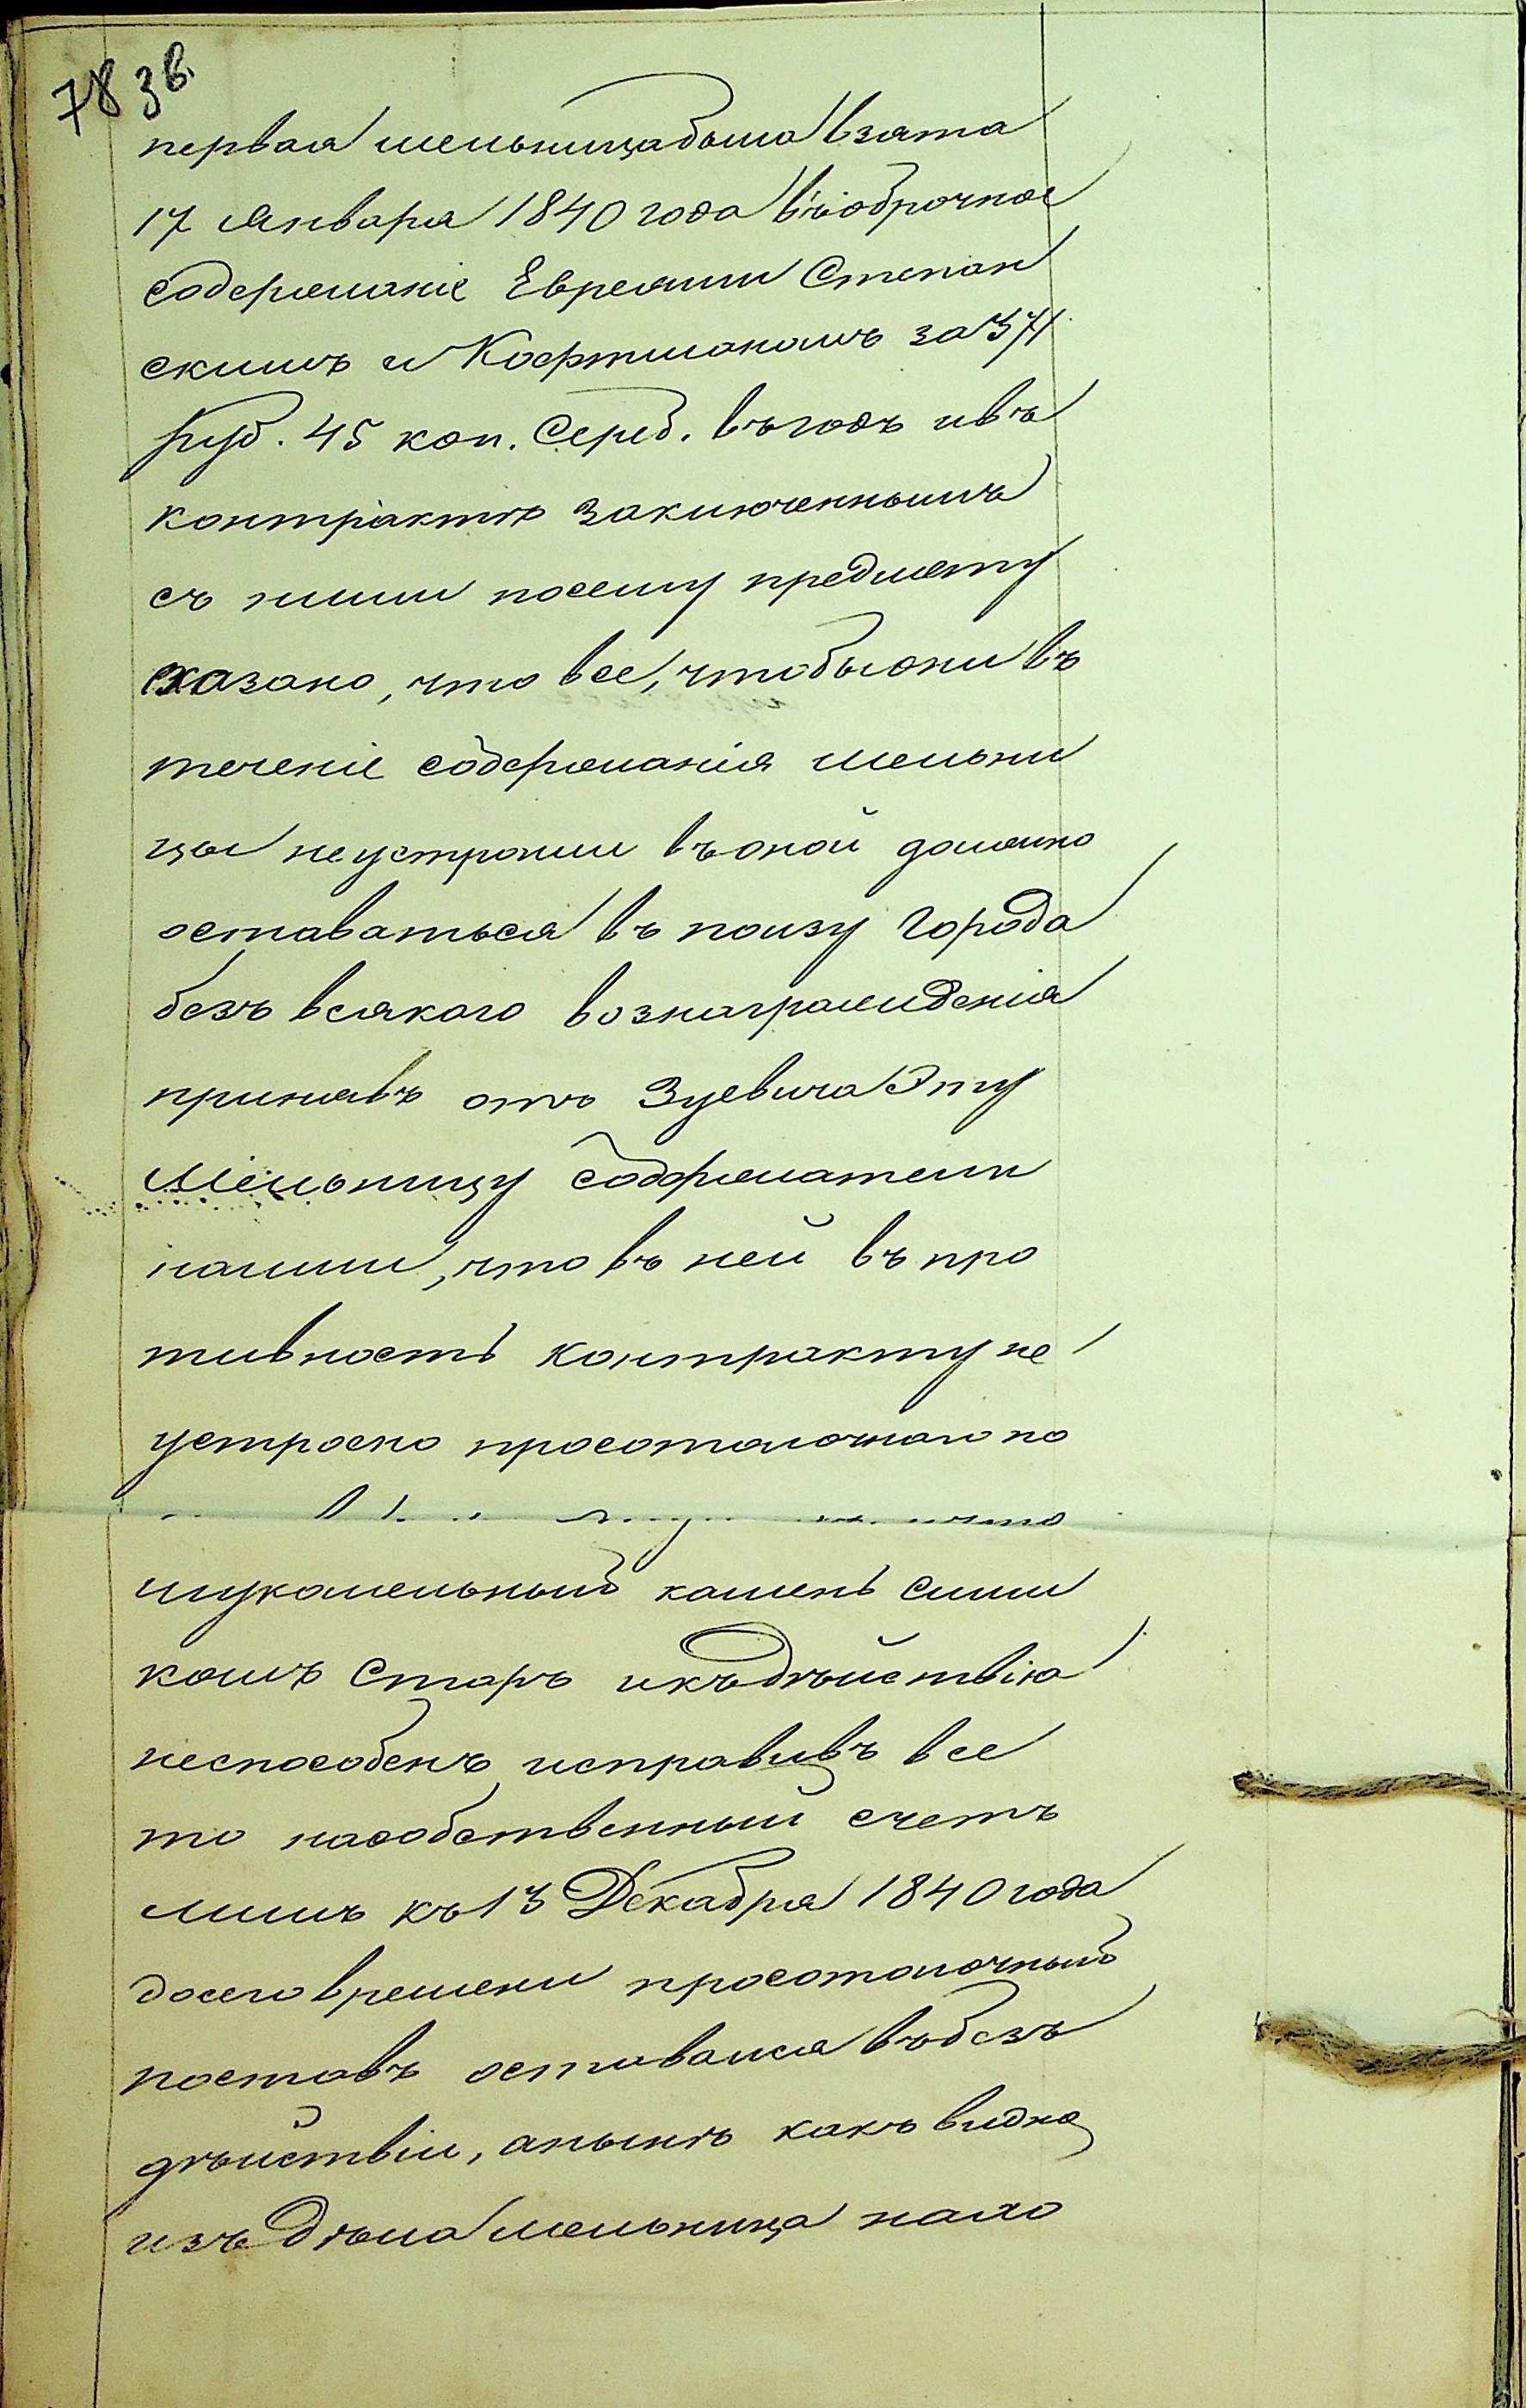 78 зв.
первая мельница была взята
17 Января 1840 года въ оброчное
содержаніе Евреями Степан
скимъ и Кофтманомъ за 371
руб. 45 коп. Сереб. въ годъ ивъ
контрактѣ заключеннымъ
съ ними посему предмету
сказано, что все, чтобы они въ
теченіе содержанія мельни
цы не устроили въ оной должно
оставаться въ ползу города
безъ всякаго вознагражденія
принявъ отъ Зуевича Эту
Мельницу Содержатели
нашли, что въ ней въ про
тивность контракту не
устроено просотолочнаго по
что
шукомельный камень слиш
комъ старъ икъ дѣйствію
неспособенъ исправивъ все
то насобственный счетъ
лишь къ 13 Декабря 1840 года
досего времени просотолочный
поставъ оставался въ без
дѣйствіи, анынѣ какъ видно
изъ Дѣла мельница нахо